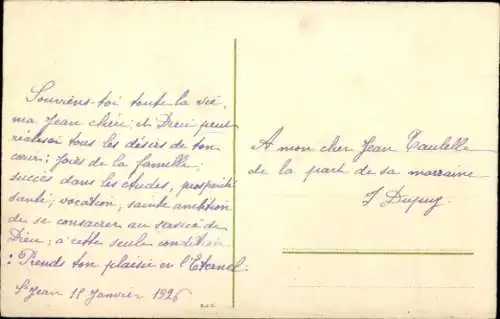 Souviens-toi toute la vie,
ma Jean chéri; et Dieu peut
réaliser tous les désirs de ton
cœur: joies de la famille;
succès dans les études, prospérité
santé; vocation, sainte ambition
de se consacrer au service de
Dieu; à cette seule condition
: Prends ton plaisir en l'Eternel
St Jean 11 Janvier 1926
A mon cher Jean Taulelle
de la part de sa marraine
J Dupuy